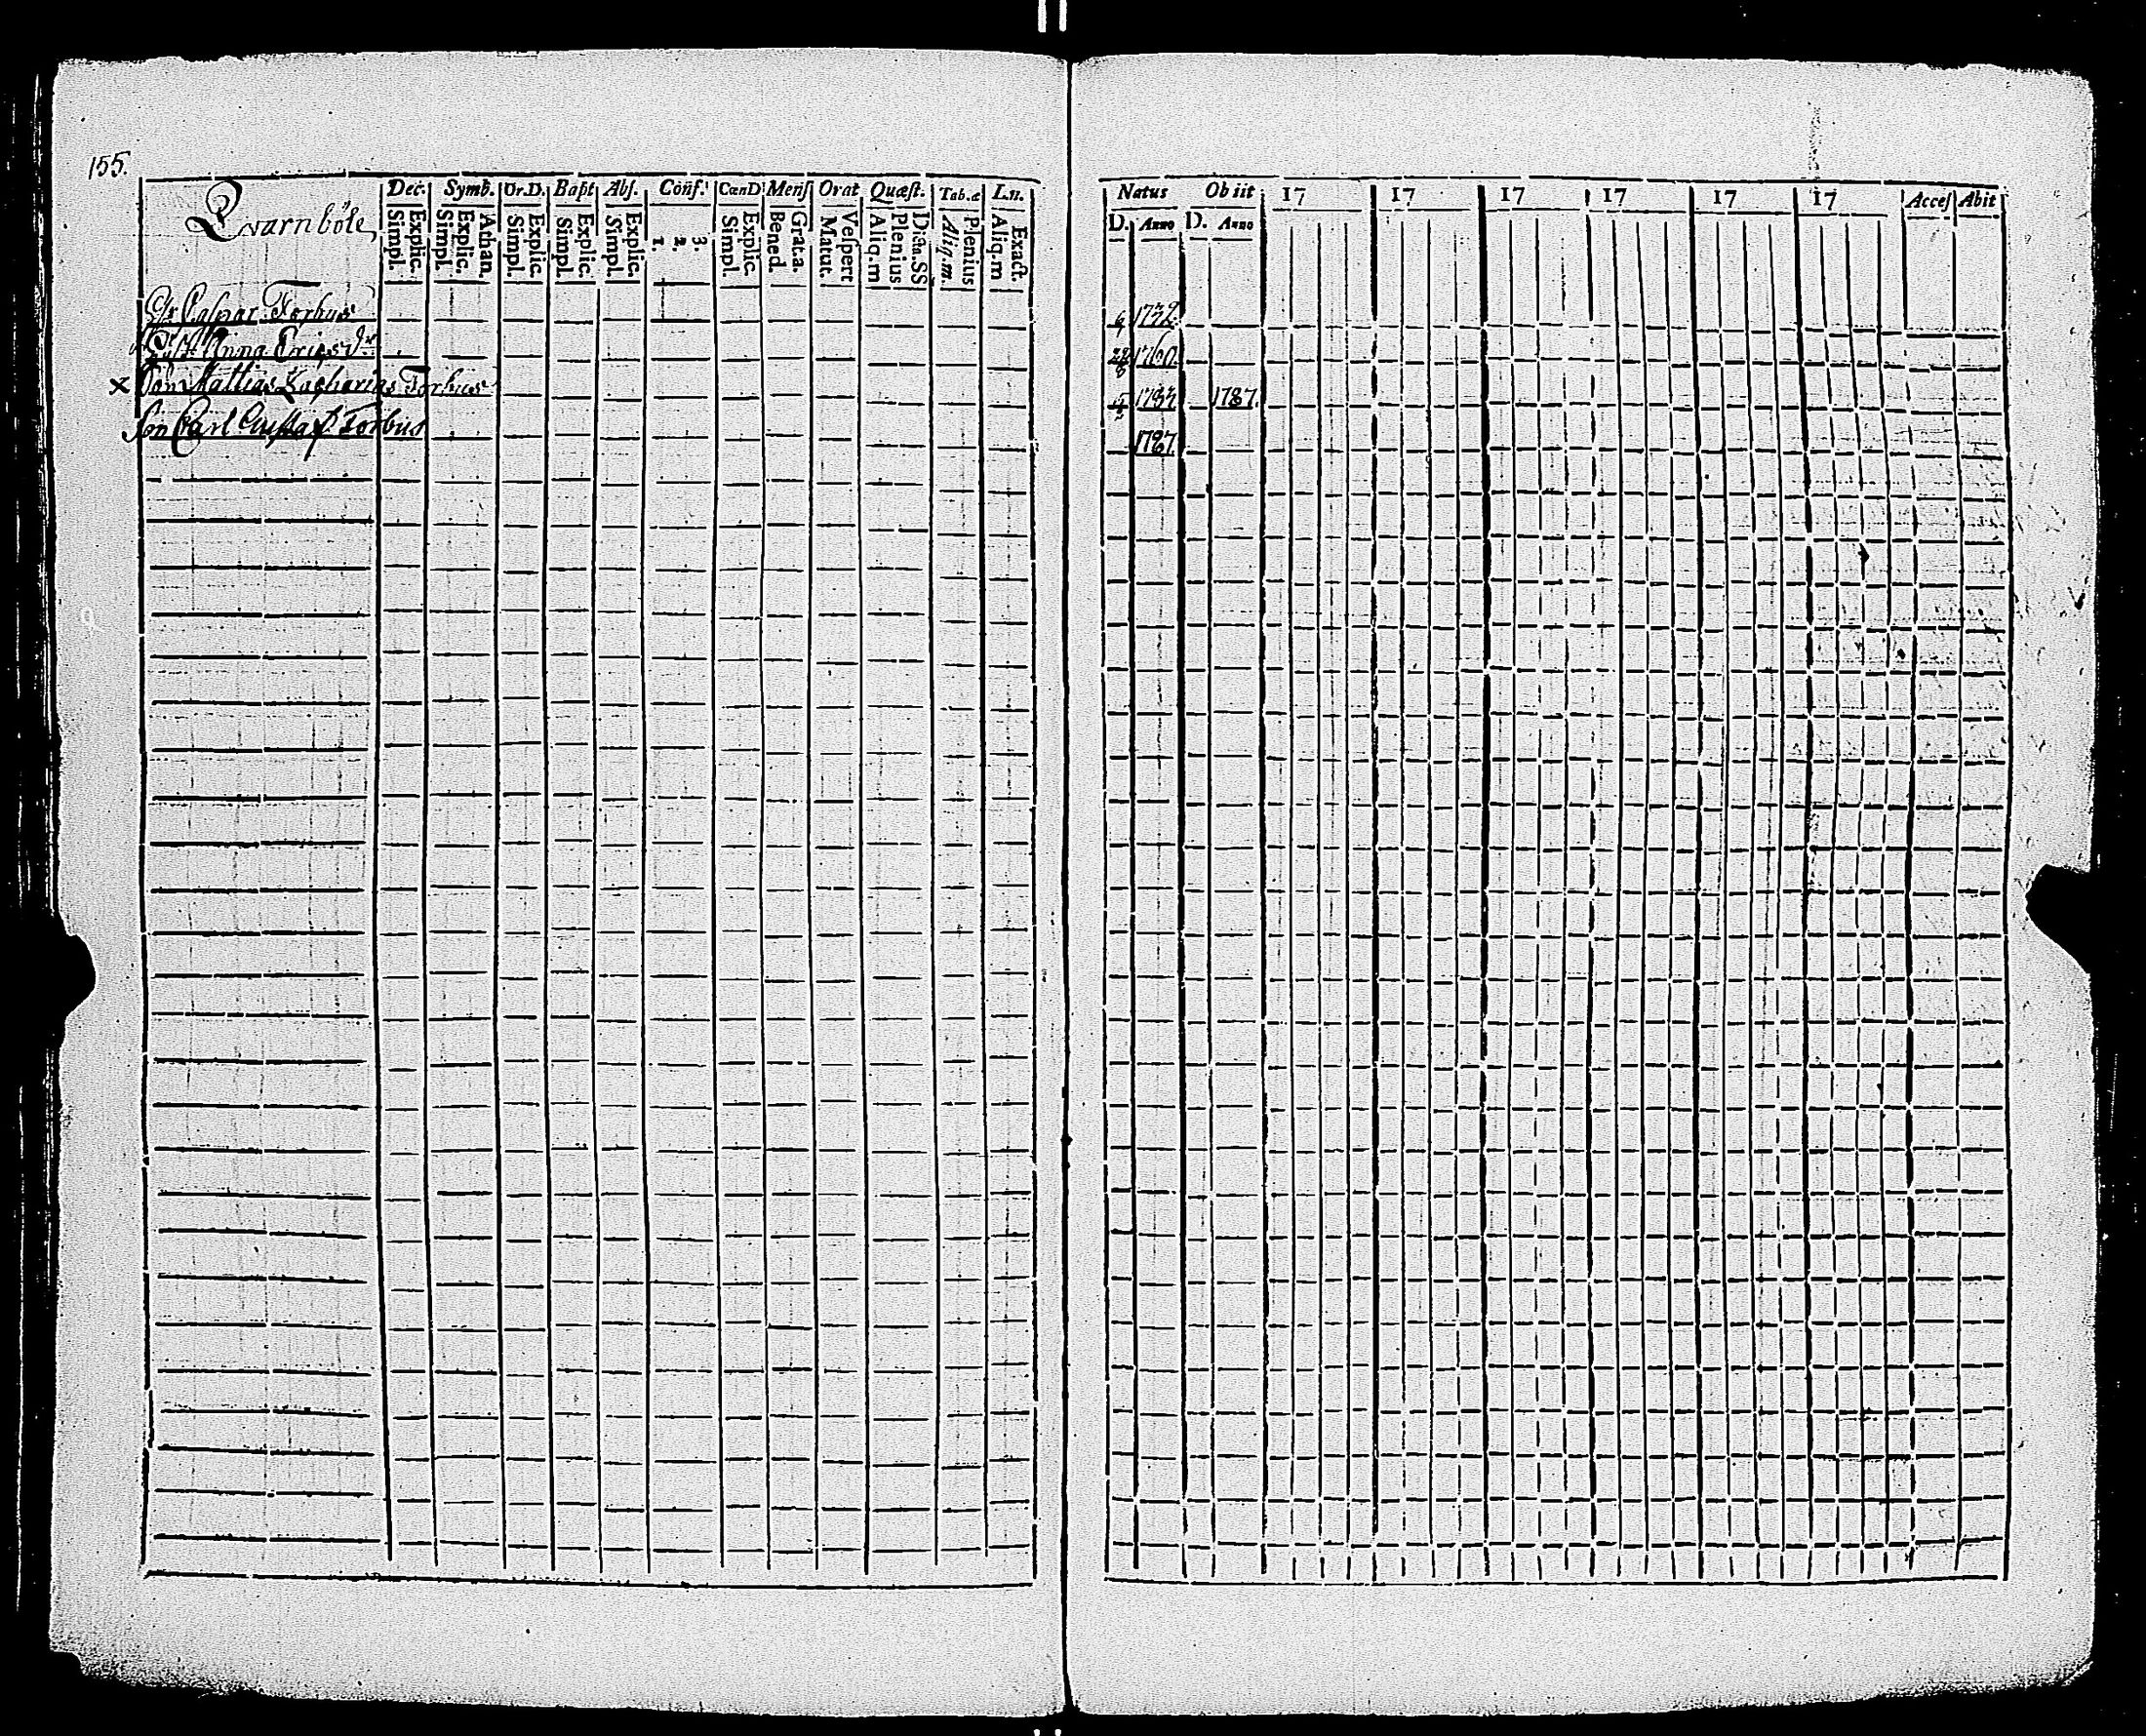 155.
Qvarnböle
Dec. Symb. Or.D. Bapt Abſ. Conf. CœnD Menſ Orat Quæſt. Tab.æ L.n.
Simpl. Explic. Simpl. Explic. Athan. Simpl. Explic. Simpl. Explic. Simpl. Explic. 1. 2. 3. Simpl. Explic. Bened. Grat.a. Matut. Veſpert Aliq.m Plenius Dicta.SS Aliq.m. Plenius Aliq.m Exact.
Caspar Forbus
Anna Ericsdr
Son Mattias Zacharias Forbus
Son Carl Gustaf Forbus
Natus Obiit 17 17 17 17 17 17 Acceſ Abit
D. Anno D. Anno
1760.
1787.
1787.